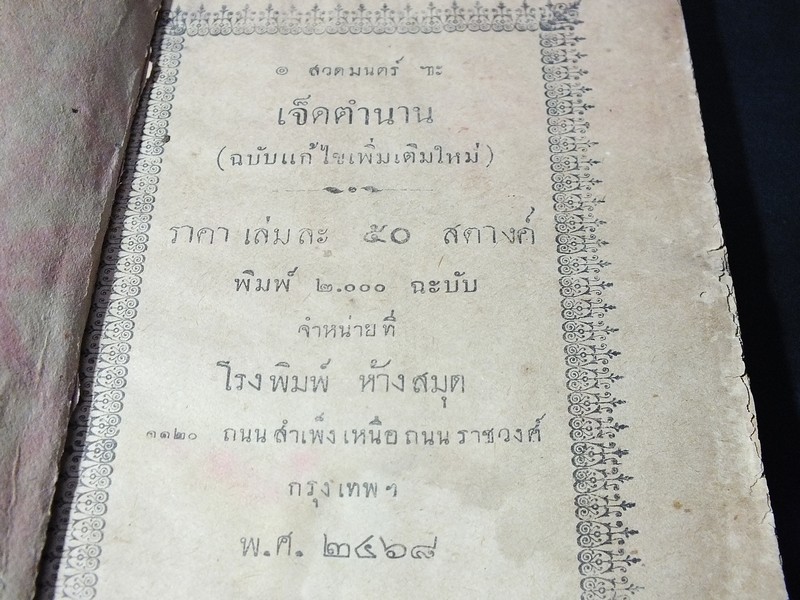 ๑ สวดมนตร์ ฯะ
เจ็ดตำนาน
(ฉบับแก้ไขเพิ่มเติมใหม่)
ราคา เล่มละ ๕๐ สตางค์
พิมพ์ ๒.๐๐๐ ฉะบับ
จำหน่ายที่
โรงพิมพ์ ห้างสมุด
๑๑๒๐ ถนนสำเพ็ง เหนือถนนราชวงศ์
กรุงเทพฯ
พ.ศ. ๒๔๖๘